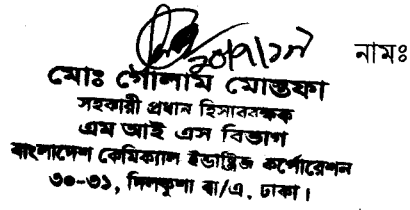 নামঃ
মোঃ গোলাম মোস্তফা
সহকারী প্রধান হিসাবরক্ষক
এম আই এস বিভাগ
বাংলাদেশ কেমিক্যাল ইন্ডাষ্ট্রিজ কর্পোরেশন
৩০-৩১, দিলকুশা বা/এ, ঢাকা।